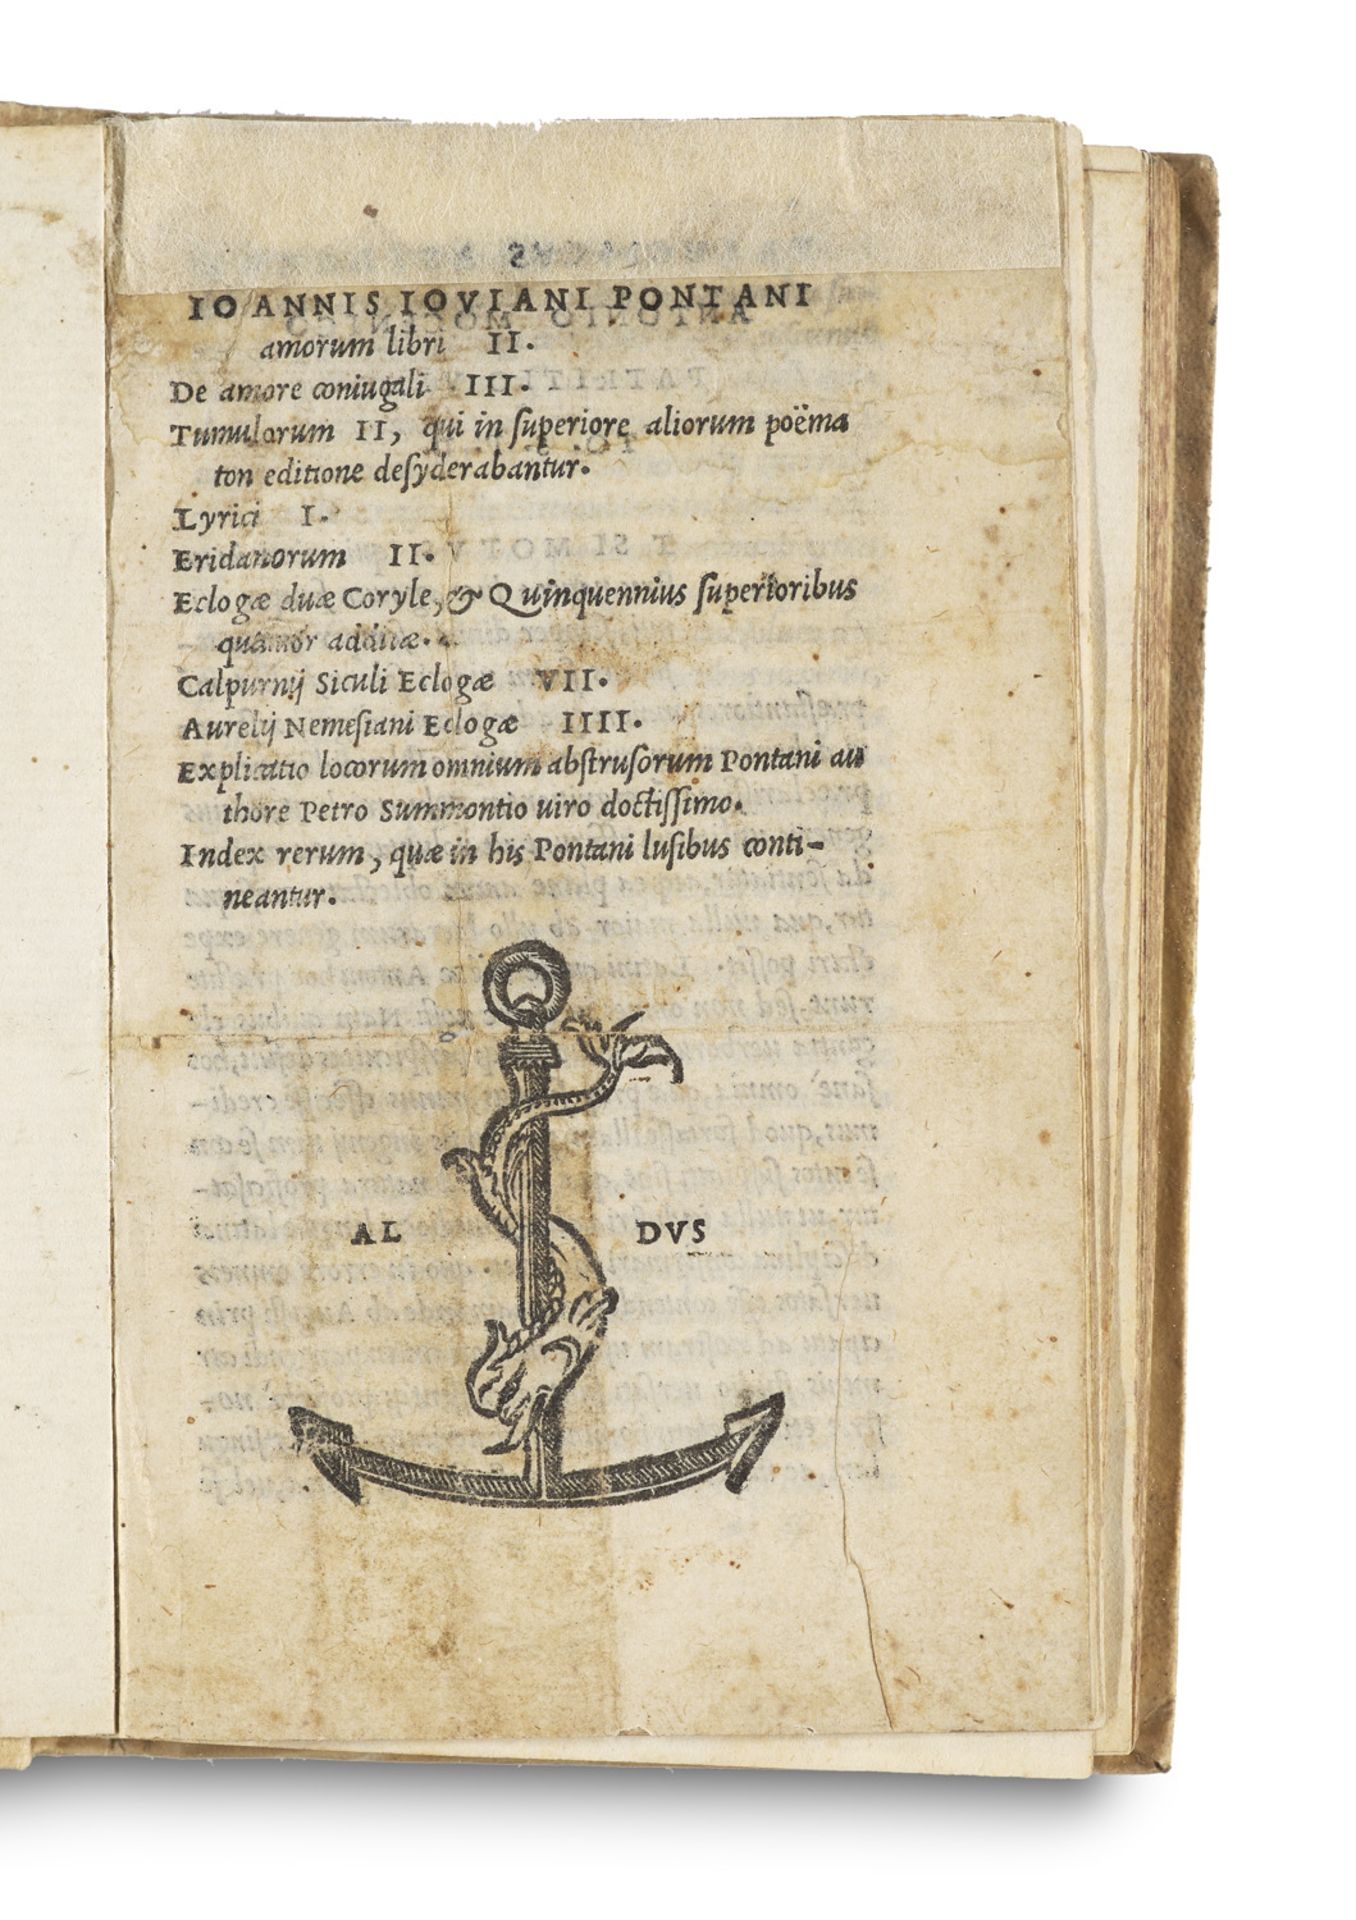 IOANNIS IOVIANI PONTANI
amorum libri II.
De amore coniugali III.
Tumulorum II, qui in superiore aliorum poëma
ton editione desyderabantur.
Lyrici I.
Eridanorum II.
Eclogæ duæ Coryle, & Quinquennius superioribus
quatuor additæ.
Calpurnij Siculi Eclogæ VII.
Aurelij Nemesiani Eclogæ IIII.
Explicatio locorum omnium abstrusorum Pontani au
thore Petro Summontio uiro doctissimo.
Index rerum, quæ in his Pontani lusibus conti-
neantur.
AL DVS